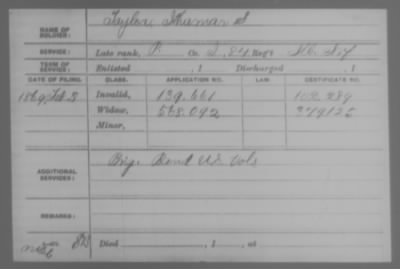 NAME OF SOLDIER: Taylor, Thurman S
SERVICE: Late rank, P. Co. I, 84 Reg't Inf
TERM OF SERVICE: Enlisted , 1 Discharged , 1
DATE OF FILING. CLASS. APPLICATION NO. LAW. CERTIFICATE NO.
1869, Feb 3 Invalid, 139.661 102.289
Widow, 568.092 379125
Minor,
ADDITIONAL SERVICES: Brig. Band U.S. Vols
REMARKS:
Died , 1 , at